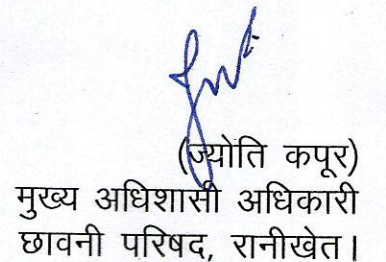 (ज्योति कपूर)
मुख्य अधिशासी अधिकारी
छावनी परिषद, रानीखेत।